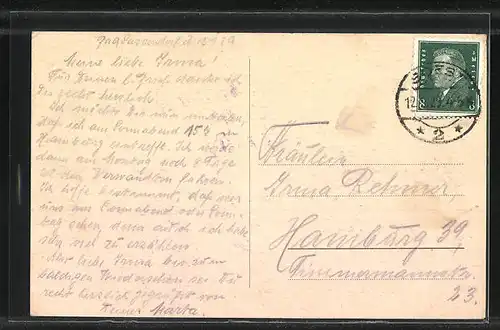 Meine liebe Irma!
Für Deinen l. Brief danke ich
Dir recht herzlich.
Ich möchte Dir nun mitteilen,
daß ich am Sonnabend 15/6 in
Hamburg eintreffe. Ich
dann am Montag noch 8 Tage
zu den Verwandten fahren.
Ich hoffe bestimmt, daß wir
uns am Sonnabend oder Sonn-
tag sehen, denn auch ich habe
Dir viel zu erzählen.
Also liebe Irma bis zum
baldigen Wiedersehen sei Du
recht herzlich gegrüßt von
Deiner Marta.
8
8
2
Fräulein
Irma Rehmer
Hamburg 39
23.